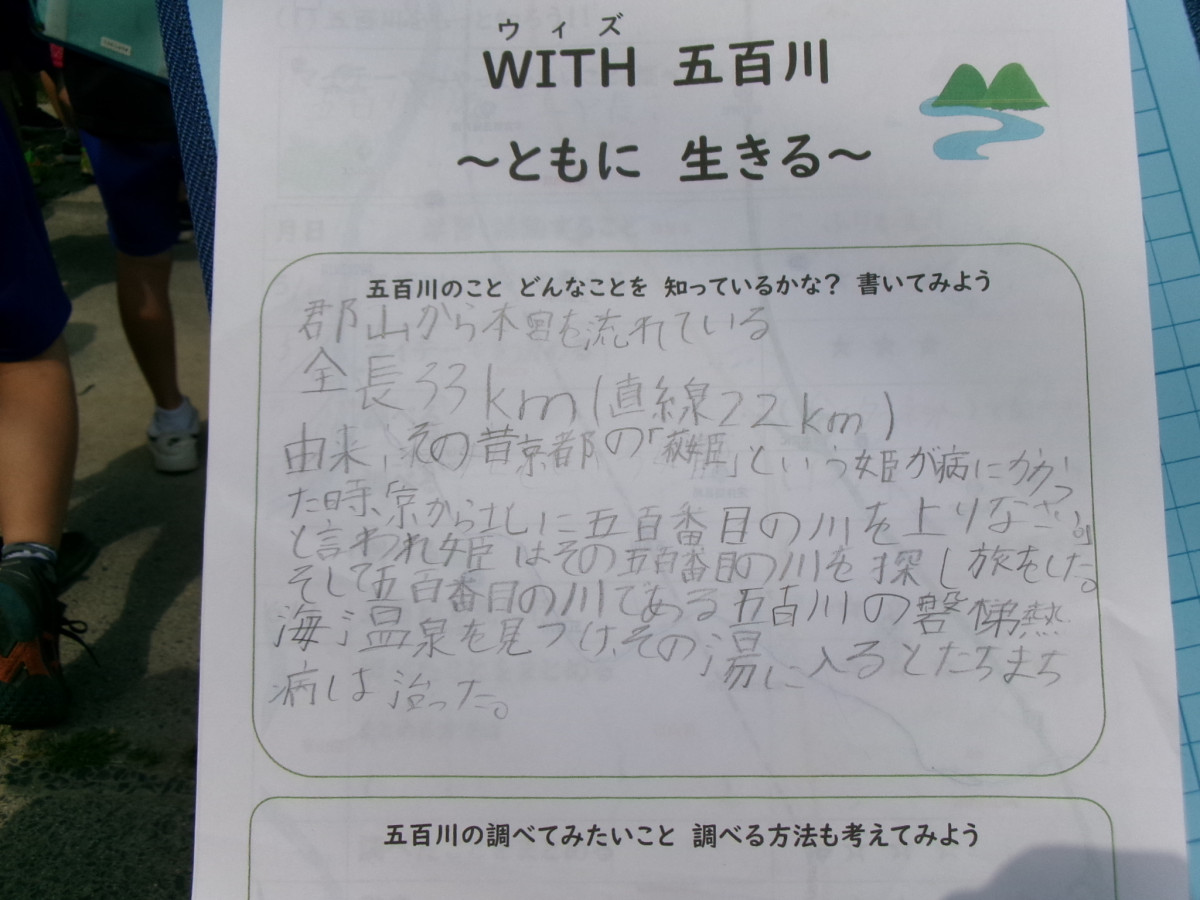 ウィズ
WITH 五百川
～ともに 生きる～
五百川のこと どんなことを 知っているかな? 書いてみよう
郡山から本宮を流れている
全長33km(直線22km)
由来;その昔京都の「萩姫」という姫が病にかかっ
た時、「京から北に五百番目の川を上りなさい。」
と言われ姫はその五百番目の川を探し旅をした。
そして五百番目の川である五百川の磐梯熱
海温泉を見つけ、その湯に入るとたちまち
病は治った。
五百川の調べてみたいこと 調べる方法も考えてみよう